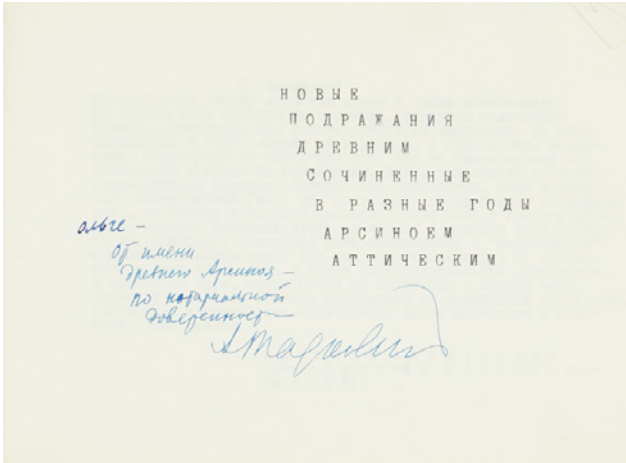 НОВЫЕ
ПОДРАЖАНИЯ
ДРЕВНИМ
СОЧИНЕННЫЕ
В РАЗНЫЕ ГОДЫ
АРСИНОЕМ
АТТИЧЕСКИМ
Ольге —
от имени
Древнего Арсиноя —
по нотариальной
доверенности